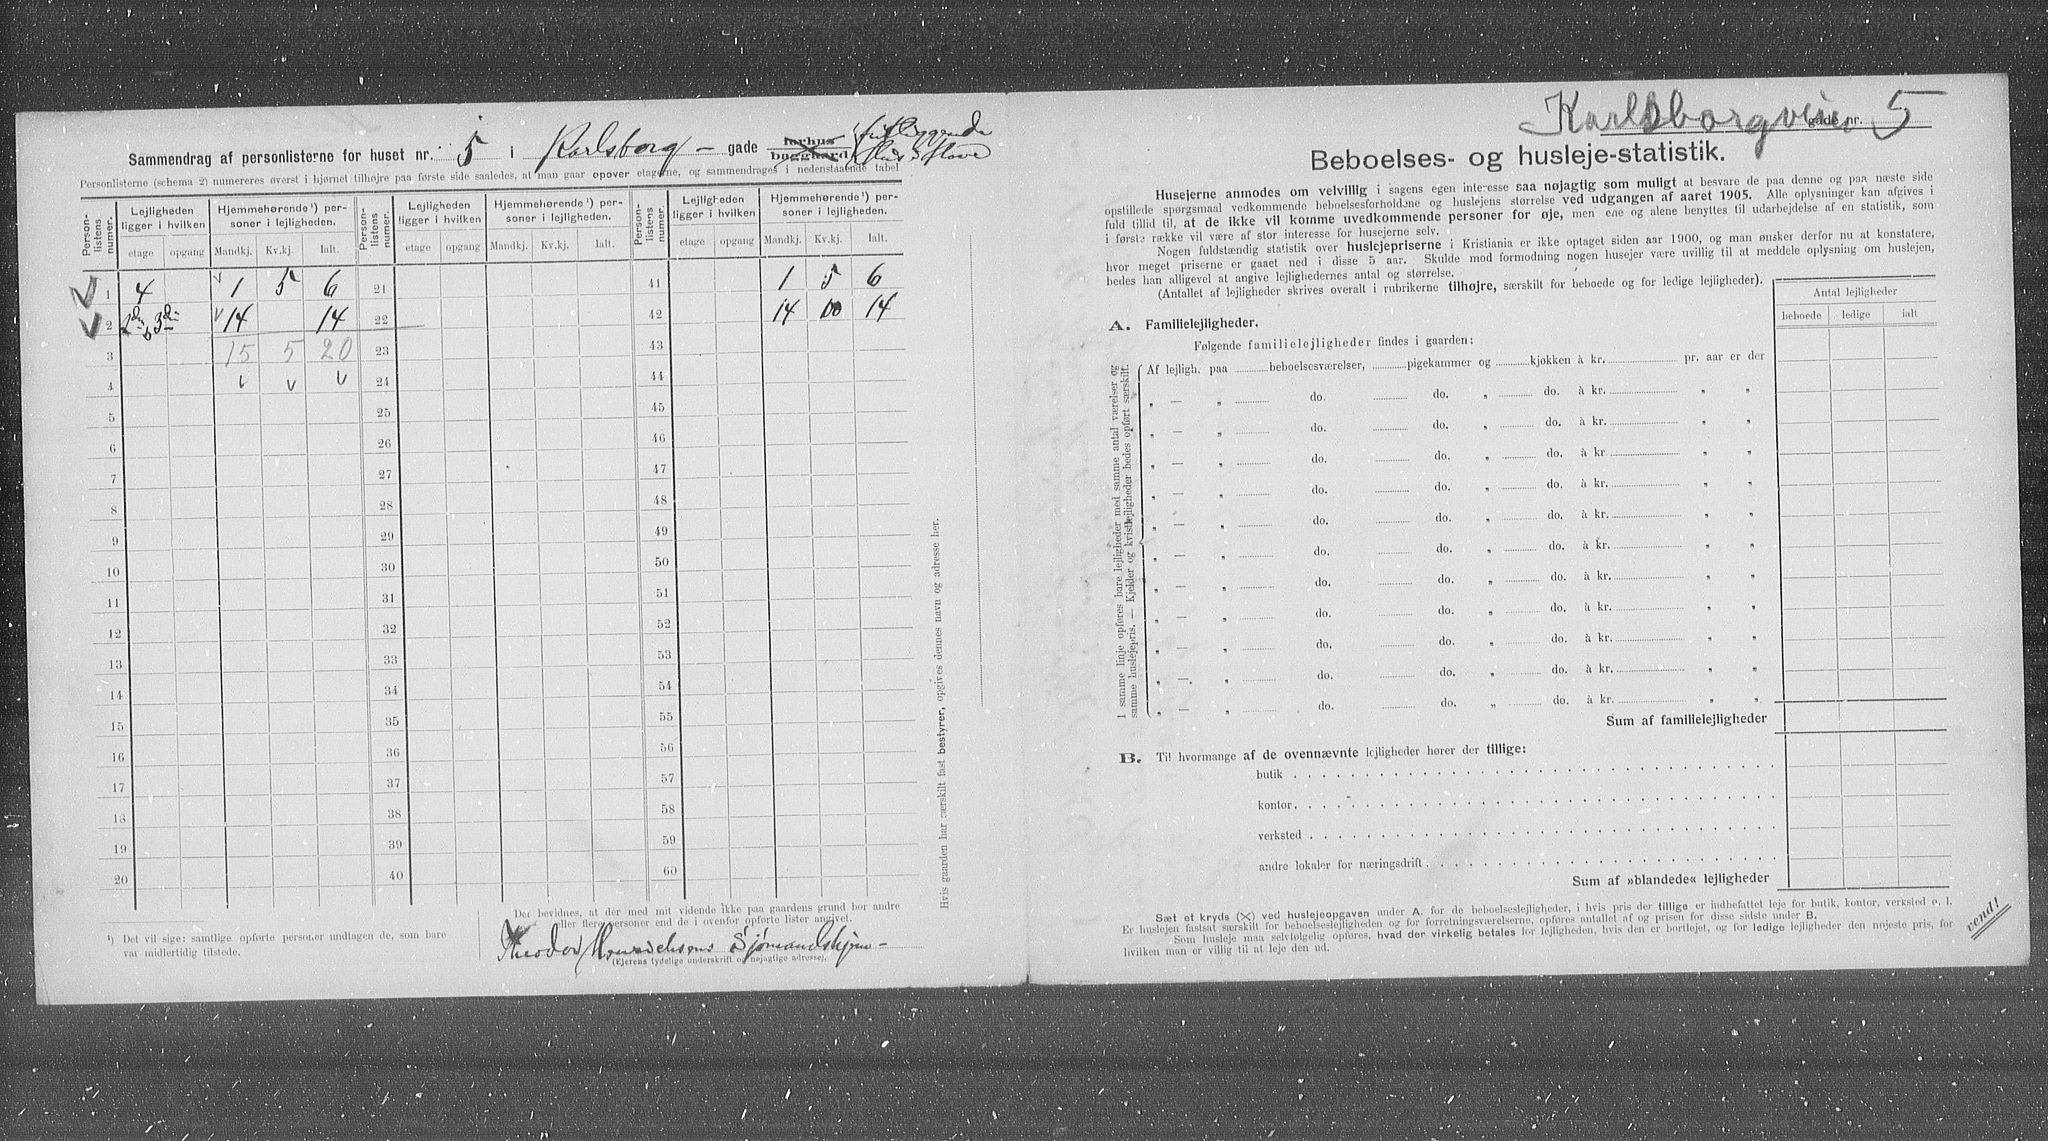 Sammendrag af personlisterne for huset nr. 5 i Karlsborg- gade forhus bakgaard fritliggende Hus i Have
Personlisterne (schema 2) numereres øverst i hjørnet tilhøjre paa første side saaledes, at man gaar opover etagerne, og sammendrages i nedenstaaende tabel
Person-listens numer. Lejligheden ligger i hvilken Hjemmehørende ¹) personer i lejligheden. Person-listens numer. Lejligheden ligger i hvilken Hjemmehørende ¹) personer i lejligheden. Person-listens numer. Lejligheden ligger i hvilken Hjemmehørende ¹) personer i lejligheden.
etage opgang Mandkj. Kv.kj. Ialt. etage opgang Mandkj. Kv.kj. Ialt. etage opgang Mandkj. Kv.kj. Ialt.
1 4 1 5 6 21 41 1 5 6
2 2den 3die 14 14 22 42 14 00 14
3 15 5 20 23 43
4 24 44
5 25 45
6 26 46
7 27 47
8 28 48
9 29 49
10 30 50
11 31 51
12 32 52
13 33 53
14 34 54
15 35 55
16 36 56
17 37 57
18 38 58
19 39 59
20 40 60
¹) Det vil sige: samtlige opførte personer undtagen de, som bare
var midlertidig tilstede.
Det bevidnes, at der med mit vidende ikke paa gaardens grund bor andre
eller flere personer end de i ovenfor opførte lister angivet.
Theodor Henrichsens Sjømandshjem
(Ejerens tydelige underskrift og nøjagtige adresse).
Hvis gaarden har særskilt fast bestyrer, opgives dennes navn og adresse her.
Karlsborgveien gade nr. 5
Beboelses- og husleje-statistik.
Husejerne anmodes om velvillig i sagens egen interesse saa nøjagtig som muligt at besvare de paa denne og paa næste side
opstillede spørgsmaal vedkommende beboelsesforholdene og huslejens størrelse ved udgangen af aaret 1905. Alle oplysninger kan afgives i
fuld tillid til, at de ikke vil komme uvedkommende personer for øje, men ene og alene benyttes til udarbejdelse af en statistik, som
i første række vil være af stor interesse for husejerne selv.
Nogen fuldstændig statistik over huslejepriserne i Kristiania er ikke optaget siden aar 1900, og man ønsker derfor nu at konstatere,
hvor meget priserne er gaaet ned i disse 5 aar. Skulde mod formodning nogen husejer være uvillig til at meddele oplysning om huslejen,
bedes han alligevel at angive lejlighedernes antal og størrelse.
(Antallet af lejligheder skrives overalt i rubrikerne tilhøjre, særskilt for beboede og for ledige lejligheder).
Antal lejligheder
beboede ledige ialt
A. Familielejligheder.
Følgende familielejligheder findes i gaarden:
Af lejligh. paa beboelsesværelser, pigekammer og kjøkken à kr. pr. aar er der
„ — „ do. do. „ do. à kr. „ „
„ — „ do. do. „ do. à kr. „ „
„ — „ do. do. „ do. à kr. „ „
„ — „ do. do. „ do. à kr. „ „
„ — „ do. do. „ do. à kr. „ „
„ — „ do. do. „ do. à kr. „ „
„ — „ do. do. „ do. à kr. „ „
„ — „ do. do. „ do. à kr. „ „
„ — „ do. do. „ do. à kr. „ „
„ — „ do. do. „ do. à kr. „ „
„ — „ do. do. „ do. à kr. „ „
I samme linje opføres bare lejligheder med samme antal værelser og
samme huslejepris. — Kjelder og kvistlejligheder bedes opført særskilt.
Sum af familielejligheder
B. Til hvormange af de ovennævnte lejligheder hører der tillige:
butik
kontor
verksted
andre lokaler for næringsdrift
Sum af »blandede« lejligheder
Sæt et kryds (X) ved huslejeopgaven under A. for de beboelseslejligheder, i hvis pris der tillige er indbefattet leje for butik, kontor, verksted o. l.
Er huslejen fastsat særskilt for beboelseslejligheden og for forretningsværelserne, opføres antallet af og prisen for disse sidste under B.
Som husleje maa selvfølgelig opføres, hvad der virkelig betales for lejligheden, hvis den er bortlejet, og for ledige lejligheder den nøjeste pris, for
hvilken man er villig til at leje den ud.
vend!